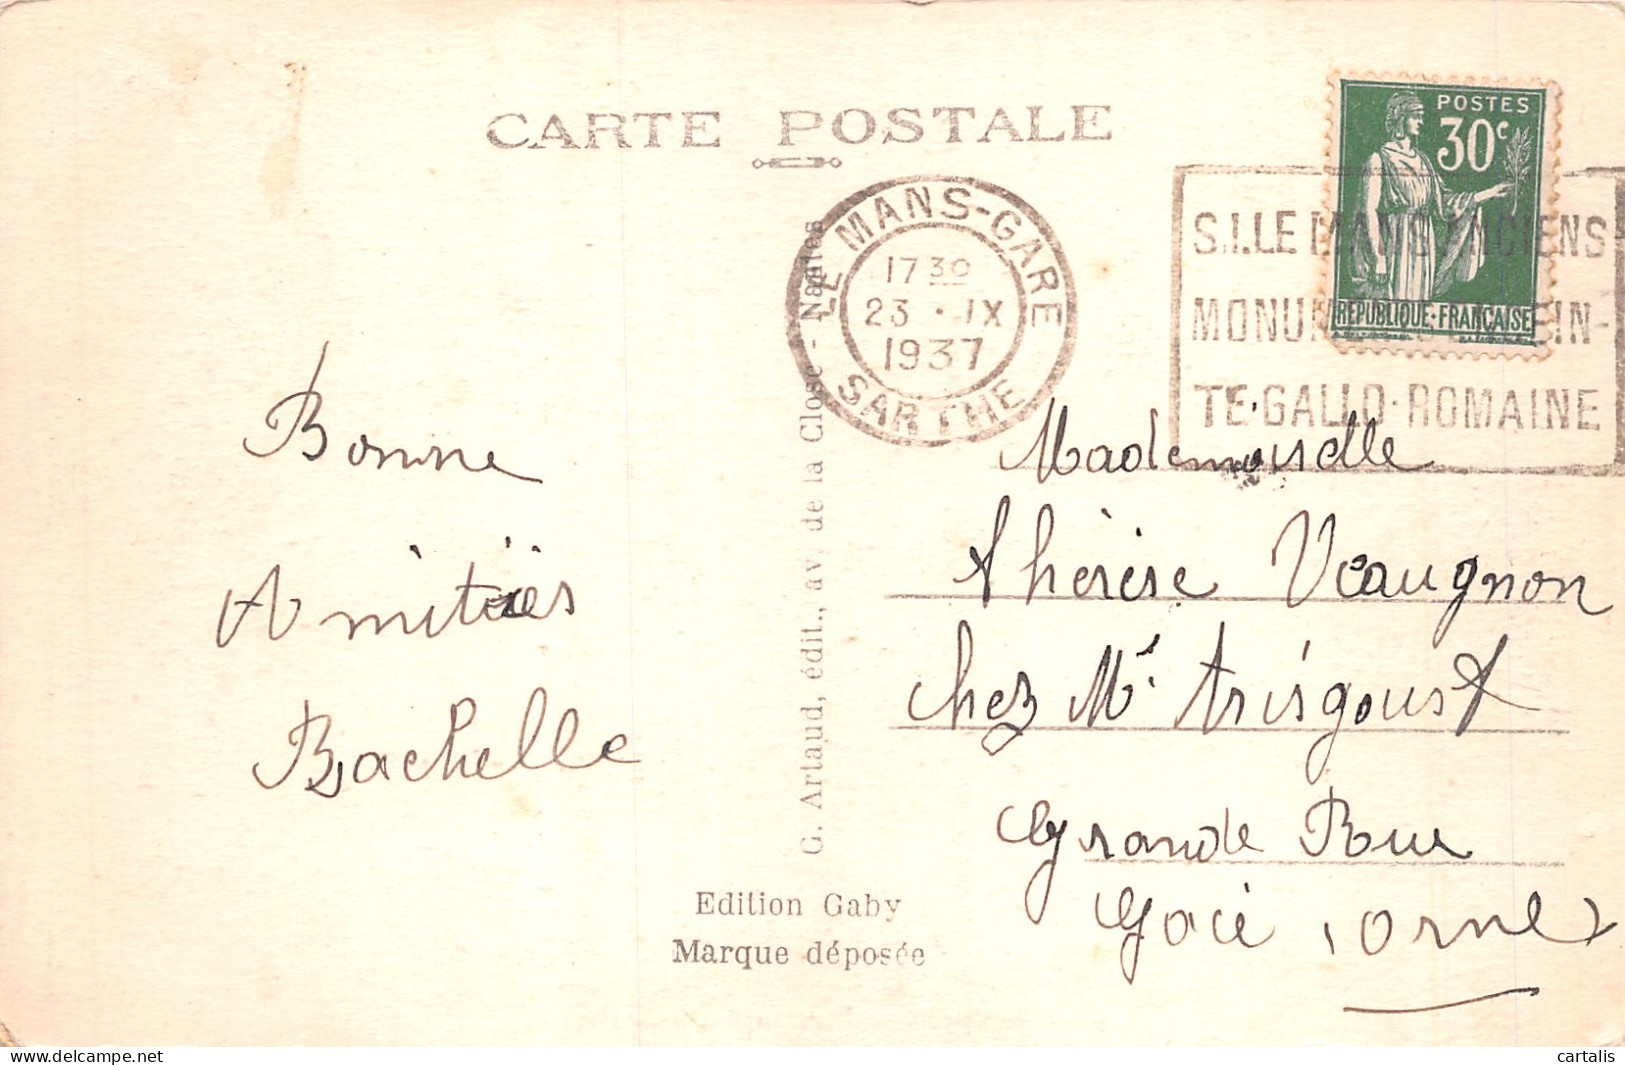 CARTE POSTALE
POSTES
30c
REPUBLIQUE·FRANÇAISE
LE MANS-GARE
17 30
23 · IX
1937
SARTHE
S.I. LE MANS ANCIENS
TE·GALLO·ROMAINE
Bonne
Amitiés
Rachelle
G. Artaud, édit., av. de la Close - Nantes
Edition Gaby
Marque déposée
Mademoiselle
Thérèse Veaugnon
chez Mr
Grande Rue
Gacé (Orne)
www.delcampe.net
cartalis